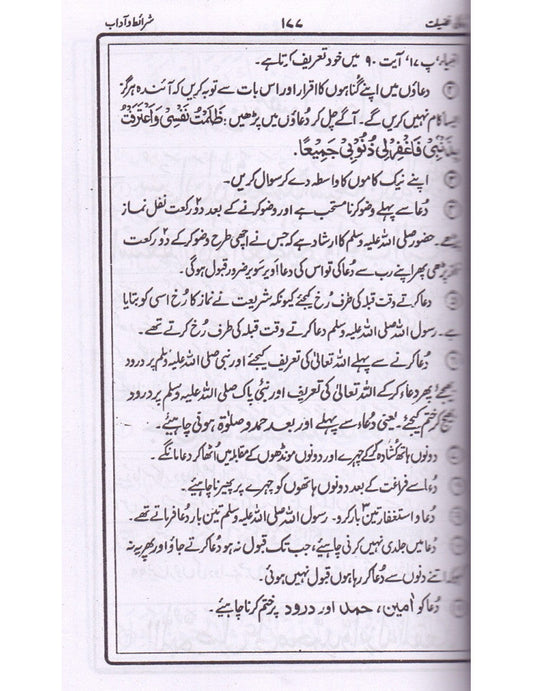 فضیلت ۱۷۷ شرائط و آداب
پ ۱۷، آیت ۹۰ میں خود تعریف کرتا ہے۔
دعاؤں میں اپنے گناہوں کا اقرار اور اس بات سے توبہ کریں کہ آئندہ ہرگز
کام نہیں کریں گے۔ آگے چل کر دعاؤں میں پڑھیں: ظَلَمْتُ نَفْسِیْ وَاعْتَرَفْتُ
بِذَنْبِیْ فَاغْفِرْلِیْ ذُنُوْبِیْ جَمِیْعًا.
اپنے نیک کاموں کا واسطہ دے کر سوال کریں۔
دُعا سے پہلے وضو کرنا مستحب ہے اور وضو کرنے کے بعد ۲ رکعت نفل نماز
حضور صلی اللہ علیہ وسلم کا ارشاد ہے کہ جس نے اچھی طرح وضو کر کے ۲ رکعت
پڑھی پھر اپنے رب سے دُعا کی تو اس کی دعا اویر سویر ضرور قبول ہوگی۔
دعا کرتے وقت قبلہ کی طرف رُخ کیجئے کیونکہ شریعت نے نماز کا رُخ اسی کو بتایا
ہے۔ رسول اللہ صلی اللہ علیہ وسلم دعا کرتے وقت قبلہ کی طرف رُخ کرتے تھے۔
دُعا کرنے سے پہلے اللہ تعالیٰ کی تعریف کیجئے اور نبی صلی اللہ علیہ وسلم پر درود
بھیجئے پھر دعا کر کے اللہ تعالیٰ کی تعریف اور نبیٔ پاک صلی اللہ علیہ وسلم پر درود
بھیج کر ختم کیجئے۔ یعنی دُعاء سے پہلے اور بعد حمد و صلوٰۃ ہونی چاہیئے۔
دونوں ہاتھ کشادہ کر کے چہرے اور دونوں مونڈھوں کے مقابلہ میں اُٹھا کر دعا مانگے۔
دُعا سے فراغت کے بعد دونوں ہاتھوں کو چہرے پر پھیرنا چاہیئے۔
دُعا و استغفار تین ۳ بار کرو۔ رسول اللہ صلی اللہ علیہ وسلم تین بار دعا فرماتے تھے۔
دُعا میں جلدی نہیں کرنی چاہیئے، جب تک قبول نہ ہو دعا کرتے جاؤ اور پھر یہ نہ
اتنے دنوں سے دُعا کر رہا ہوں قبول نہیں ہوئی۔
دُعا کو امین، حمد اور درود پر ختم کرنا چاہیئے۔